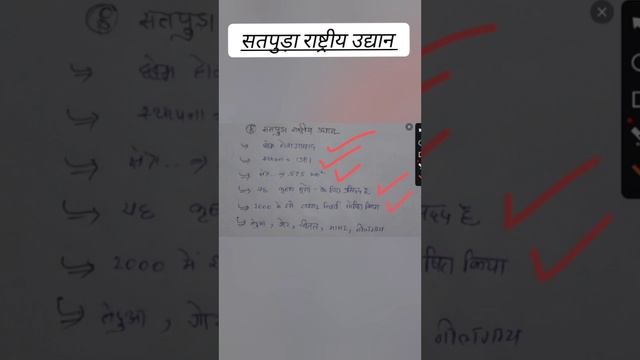 सतपुड़ा राष्ट्रीय उद्यान
⑧ सतपुड़ा राष्ट्रीय उद्यान
↳ होशंगाबाद
↳ स्थापना - 1981
↳ क्षेत्र .. → 525 km²
↳ यह कृष्ण मृगो के लिए प्रसिद्ध है
↳ 2000 में इसे टाइगर रिजर्व घोषित किया
↳ तेंदुआ, चीतल, सांभर, नीलगाय